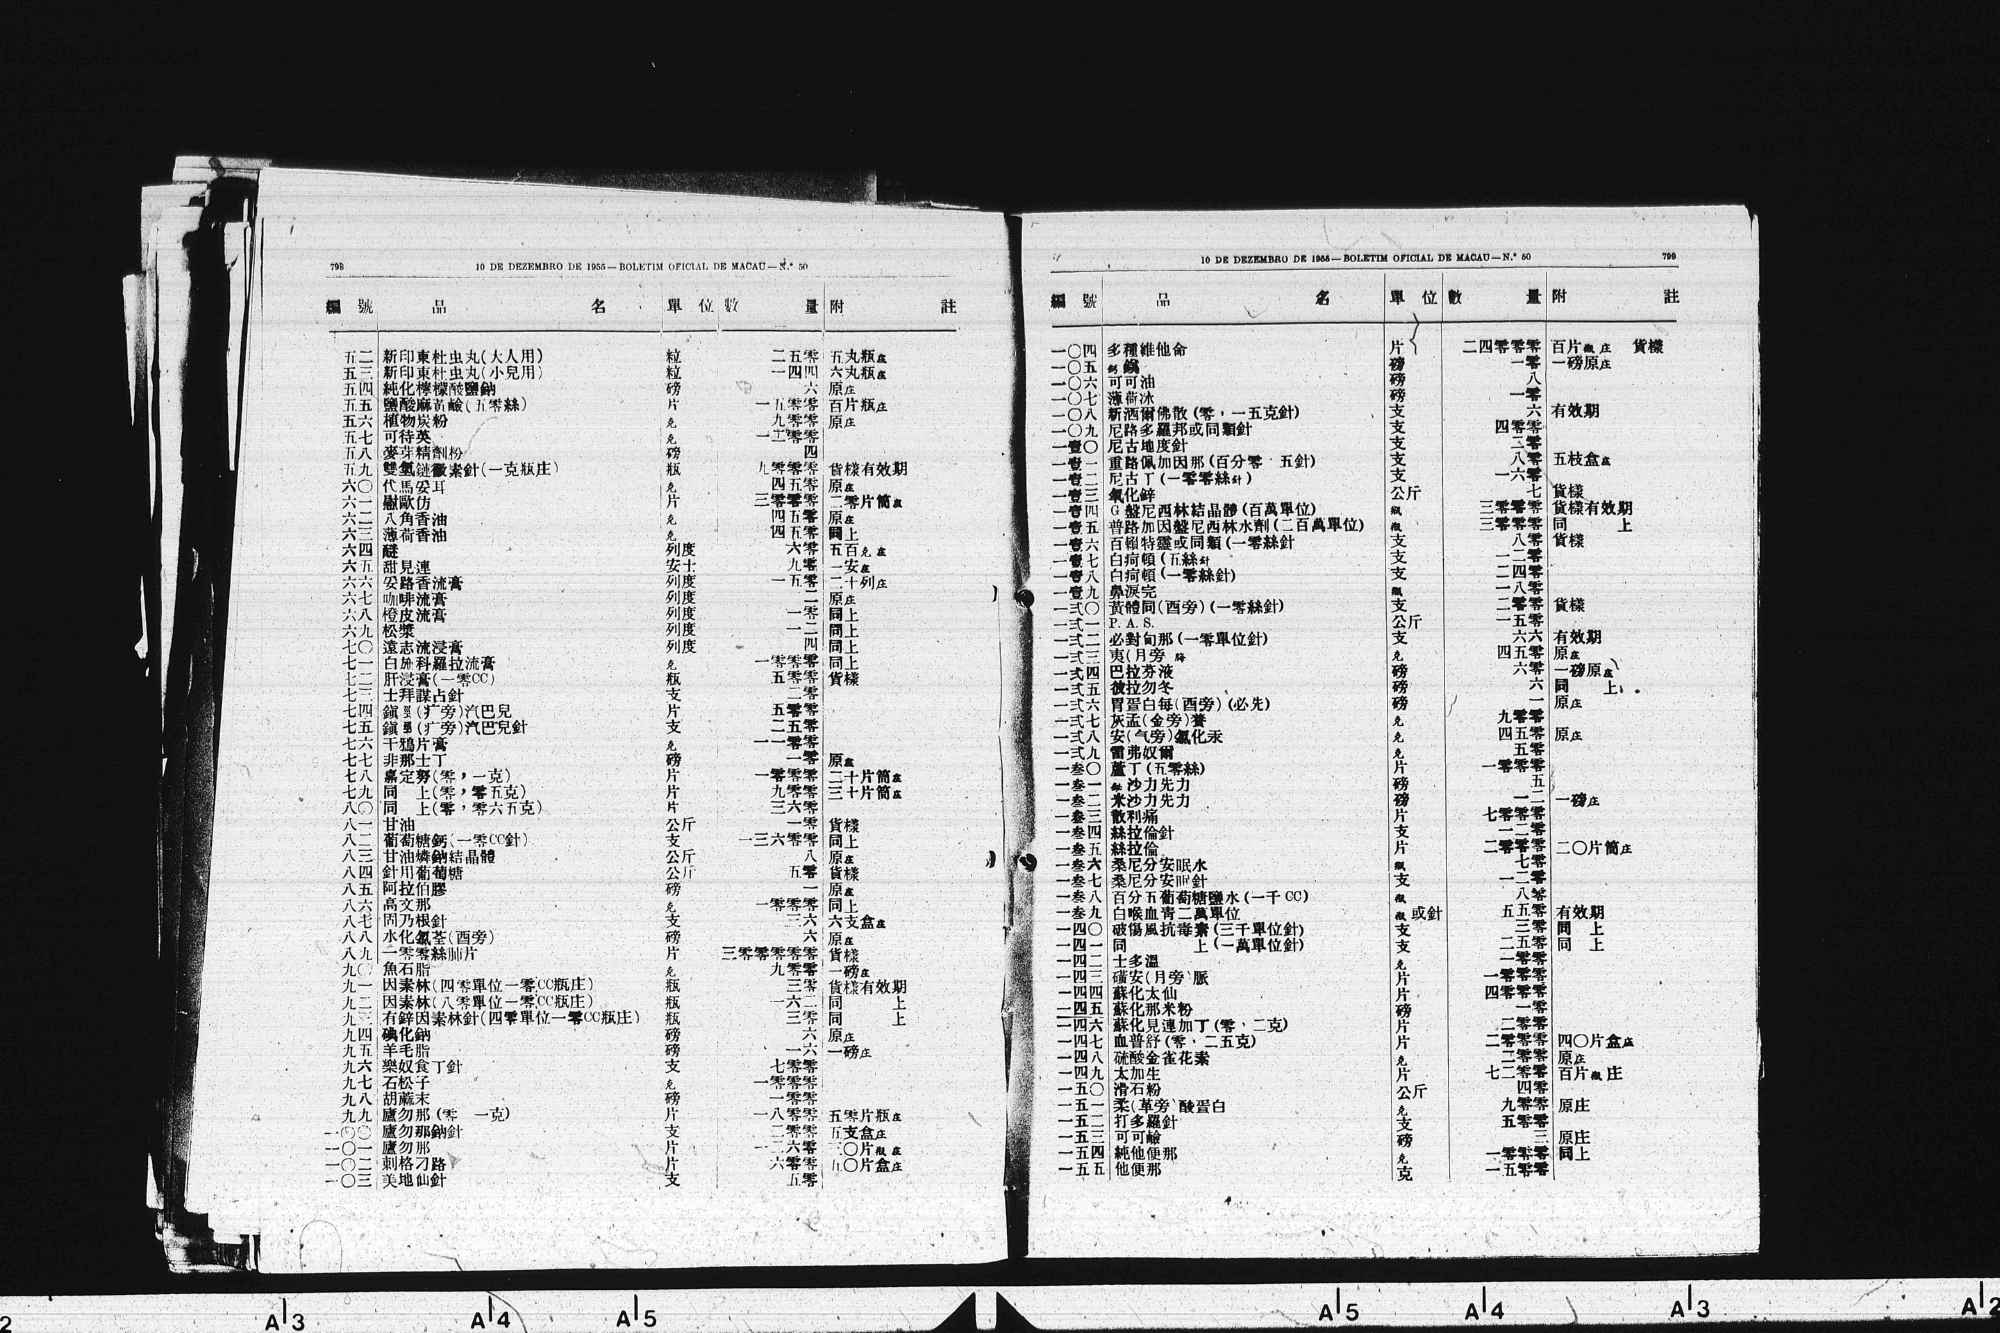 798
10 DE DEZEMBRO DE 1955 — BOLETIM OFICIAL DE MACAU — N.º 50
編號 品名 單位 數量 附註
五二 新印東杜虫丸(大人用) 粒 二五零 五丸瓶庄
五三 新印東杜虫丸(小兒用) 粒 一四四 六丸瓶庄
五四 純化檸檬酸鹽鈉 磅 六 原庄
五五 鹽酸麻黃鹼(五零絲) 片 一五零零 百片瓶庄
五六 植物炭粉 克 九零零 原庄
五七 可待英 克 一二零零
五八 麥芽精劑粉 磅 四
五九 雙氫鏈黴素針(一克瓶庄) 瓶 九零零零 貨樣有效期
六〇 代馬妥耳 克 四五零 原庄
六一 慰歐仿 片 三零零零 二零片筒庄
六二 八角香油 克 四五零 原庄
六三 薄荷香油 克 四五零 同上
六四 醚 列度 六零 五百克庄
六五 甜見連 安士 九零 一安庄
六六 妥路香流膏 列度 一五零 二十列庄
六七 咖啡流膏 列度 二 原庄
六八 橙皮流膏 列度 一零 同上
六九 松漿 列度 一二 同上
七〇 遠志流浸膏 列度 四 同上
七一 白施科羅拉流膏 克 一零零零 同上
七二 肝浸膏(一零CC) 瓶 五零零 貨樣
七三 士拜謀占針 支 二零
七四 鎮(疒旁)汽巴兒 片 五零零
七五 鎮(疒旁)汽巴兒針 支 二五零
七六 干鴉片膏 克 一一零零
七七 非那士丁 磅 一零 原庄
七八 嘉定努(零，一克) 片 一零零零 二十片筒庄
七九 同上(零，零五克) 片 九零零 三十片筒庄
八〇 同上(零，零六五克) 片 三六零
八一 甘油 公斤 一零 貨樣
八二 葡萄糖鈣(一零CC針) 支 一三六零零 同上
八三 甘油燐鈉結晶體 公斤 八 原庄
八四 針用葡萄糖 公斤 五零 貨樣
八五 阿拉伯膠 磅 一 原庄
八六 高文那 克 一零零零 同上
八七 周乃根針 支 三六 六支盒庄
八八 水化氯荃(酉旁) 磅 六 原庄
八九 一零零絲肺片 片 三零零零零零 貨樣
九〇 魚石脂 克 九零零 一磅庄
九一 因素林(四零單位一零CC瓶庄) 瓶 三零 貨樣有效期
九二 因素林(八零單位一零CC瓶庄) 瓶 一六二 同上
九三 有鋅因素林針(四零單位一零CC瓶庄) 瓶 三零 同上
九四 碘化鈉 磅 六 原庄
九五 羊毛脂 磅 一六 一磅庄
九六 樂奴食丁針 支 七零零
九七 石松子 克 一零零零
九八 胡蔴末 磅 一零零
九九 廬勿那(零 一克) 片 一八零零 五零片瓶庄
一〇〇 廬勿那鈉針 支 二零零 五支盒庄
一〇一 廬勿那 片 六零 〇片瓶庄
一〇二 刺格刁路 片 六零零 五〇片盒庄
一〇三 美地仙針 支 五零
10 DE DEZEMBRO DE 1955 — BOLETIM OFICIAL DE MACAU — N.º 50
799
編號 品名 單位 數量 附註
一〇四 多種維他命 片 二四零零零 百片瓶庄 貨樣
一〇五 磅 一零 一磅原庄
一〇六 可可油 磅 八
一〇七 薄荷冰 磅 一零
一〇八 新洒爾佛散(零，一五克針) 支 六 有效期
一〇九 尼路多羅邦或同類針 支 四零零
一壹〇 尼古地度針 支 二零
一壹一 重路佩加因那(百分零．五針) 支 八零 五枝盒庄
一壹二 尼古丁(一零零絲針) 支 一六零
一壹三 氧化鋅 公斤 七 貨樣
一壹四 G盤尼西林結晶體(百萬單位) 瓶 三零零零 貨樣有效期
一壹五 普路加因盤尼西林水劑(二百萬單位) 瓶 三零零零 同上
一壹六 百賴特靈或同類(一零絲針 支 八零 貨樣
一壹七 白疴頓(五絲針 支 一二零
一壹八 白疴頓(一零絲針) 支 二四零
一壹九 鼻淚完 瓶 一八零
一弍〇 黃體同(酉旁)(一零絲針) 支 二零零 貨樣
一弍一 P. A. S. 公斤 一五零
一弍二 必對旬那(一零單位針) 支 六六 有效期
一弍三 夷(月旁 克 四五零 原庄
一弍四 巴拉芬液 磅 六零 一磅原庄
一弍五 彼拉勿冬 磅 六 同上
一弍六 胃蛋白每(酉旁)(必先) 磅 一 原庄
一弍七 灰孟(金旁)養 克 九零零
一弍八 安(气旁)氯化汞 克 四五零 原庄
一弍九 雷弗奴爾 克 五零
一叁〇 蘆丁(五零絲) 片 一零零零
一叁一 沙力先力 磅 五
一叁二 米沙力先力 磅 一二 一磅庄
一叁三 散利痛 片 七零零零
一叁四 絲拉倫針 支 一二零
一叁五 絲拉倫 片 二零零零 二〇片筒庄
一叁六 桑尼分安眠水 瓶 七零
一叁七 桑尼分安眠針 支 一二零
一叁八 百分五葡萄糖鹽水(一千CC) 瓶 八零
一叁九 白喉血青二萬單位 瓶或針 五五零 有效期
一四〇 破傷風抗毒素(三千單位針) 支 三零 同上
一四一 同上(一萬單位針) 支 二五零 同上
一四二 士多溫 克 一零零
一四三 磺安(月旁)脈 片 一零零零
一四四 蘇化太仙 片 四零零零
一四五 蘇化那米粉 磅 一零
一四六 蘇化見連加丁(零，二克) 片 二零零
一四七 血普舒(零．二五克) 片 二零零零 四〇片盒庄
一四八 硫酸金雀花素 克 二零零 原庄
一四九 太加生 片 七二零零 百片瓶庄
一五〇 滑石粉 公斤 四零
一五一 柔(革旁)酸蛋白 克 九零零 原庄
一五二 打多羅針 支 五零零
一五三 可可鹼 磅 三 原庄
一五四 純他便那 克 一零零零 同上
一五五 他便那 克 一五零零
A3 A4 A5 A5 A4 A3 A2